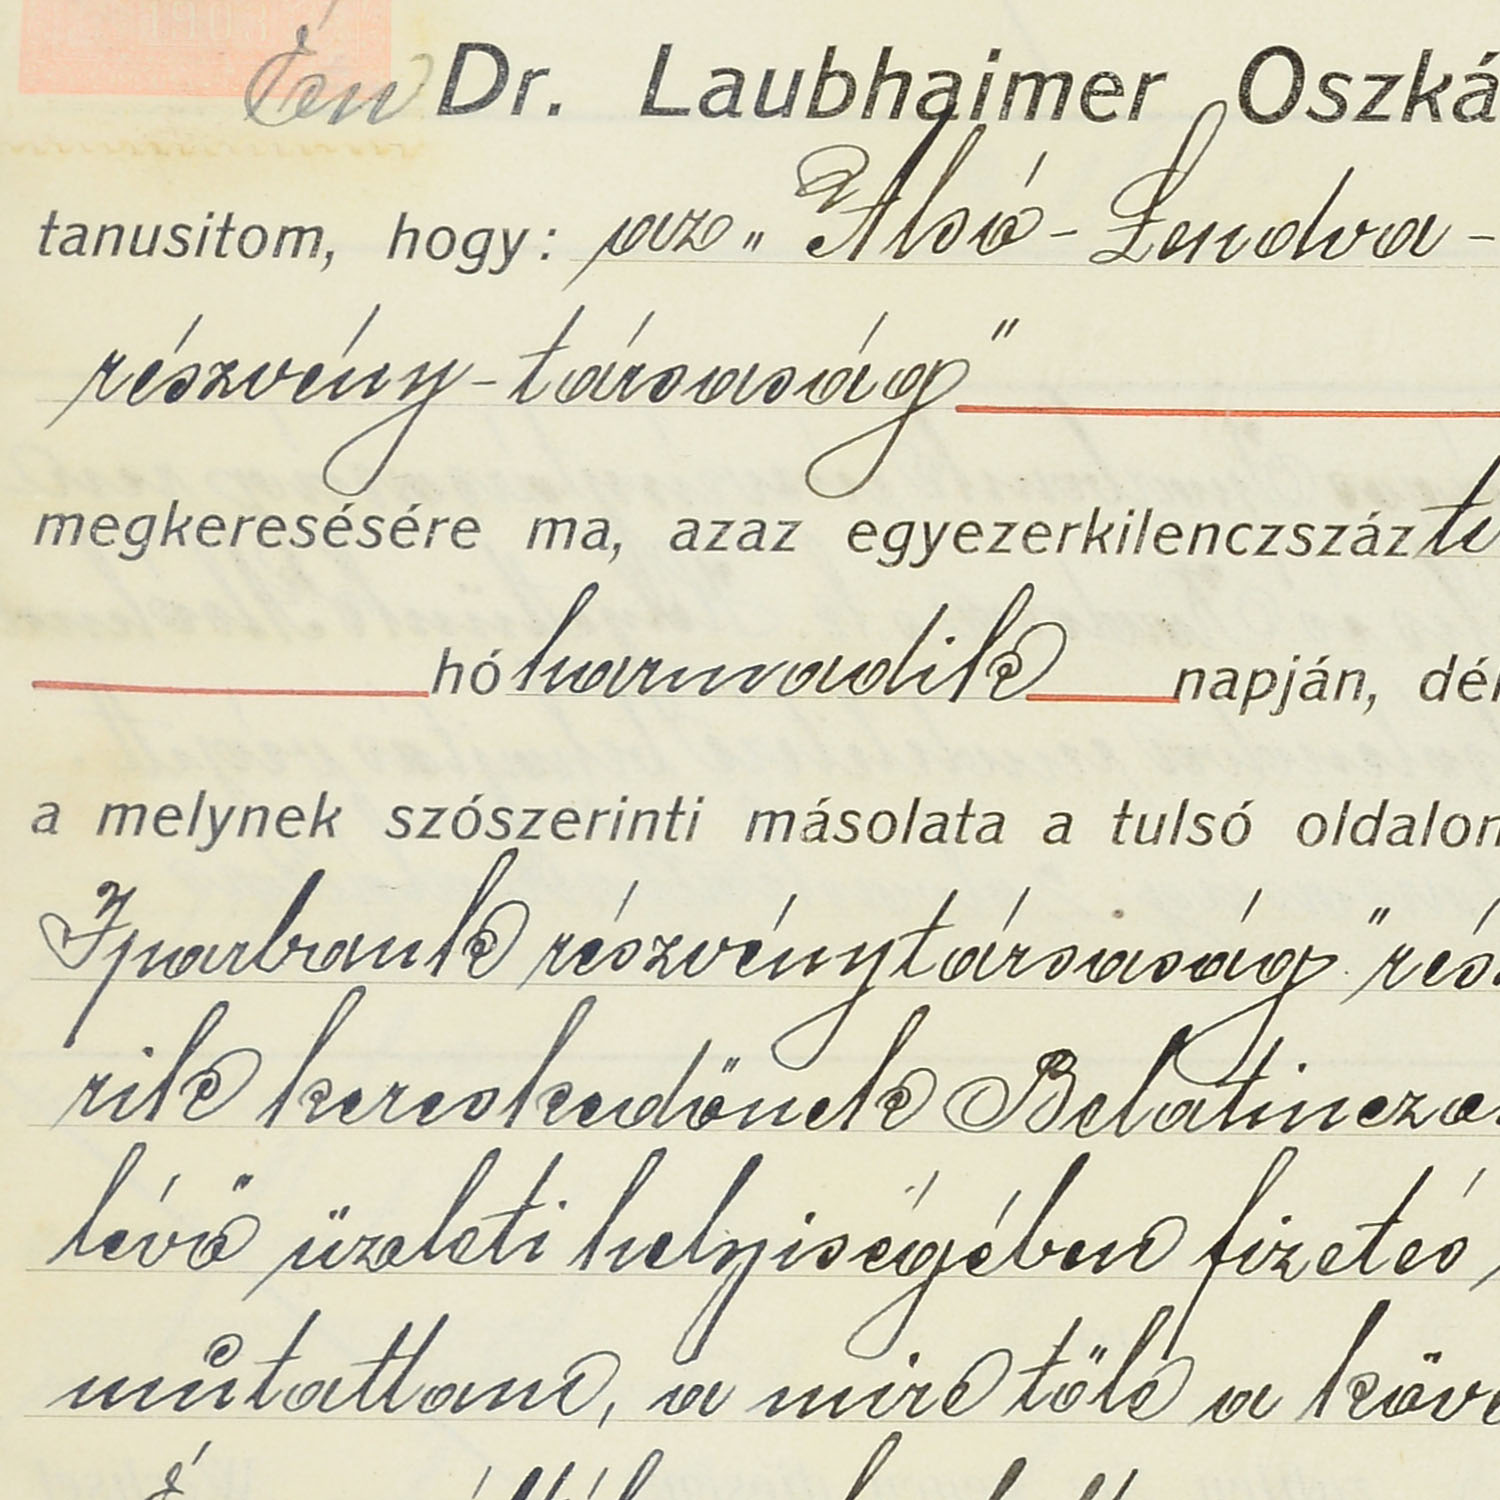 1908
Én Dr. Laubhaimer Oszká
tanusitom, hogy: az „Alsó-Lendva-
részvény-társaság"
megkeresésére ma, azaz egyezerkilenczszáz ti
hó harmadik napján, dél
a melynek szószerinti másolata a tulsó oldalon
Iparbank részvénytársaság" rés
rik kereskedőnek Belatincza
lévő üzleti helyiségében fizetés
műtattam, a mire tőle a köve